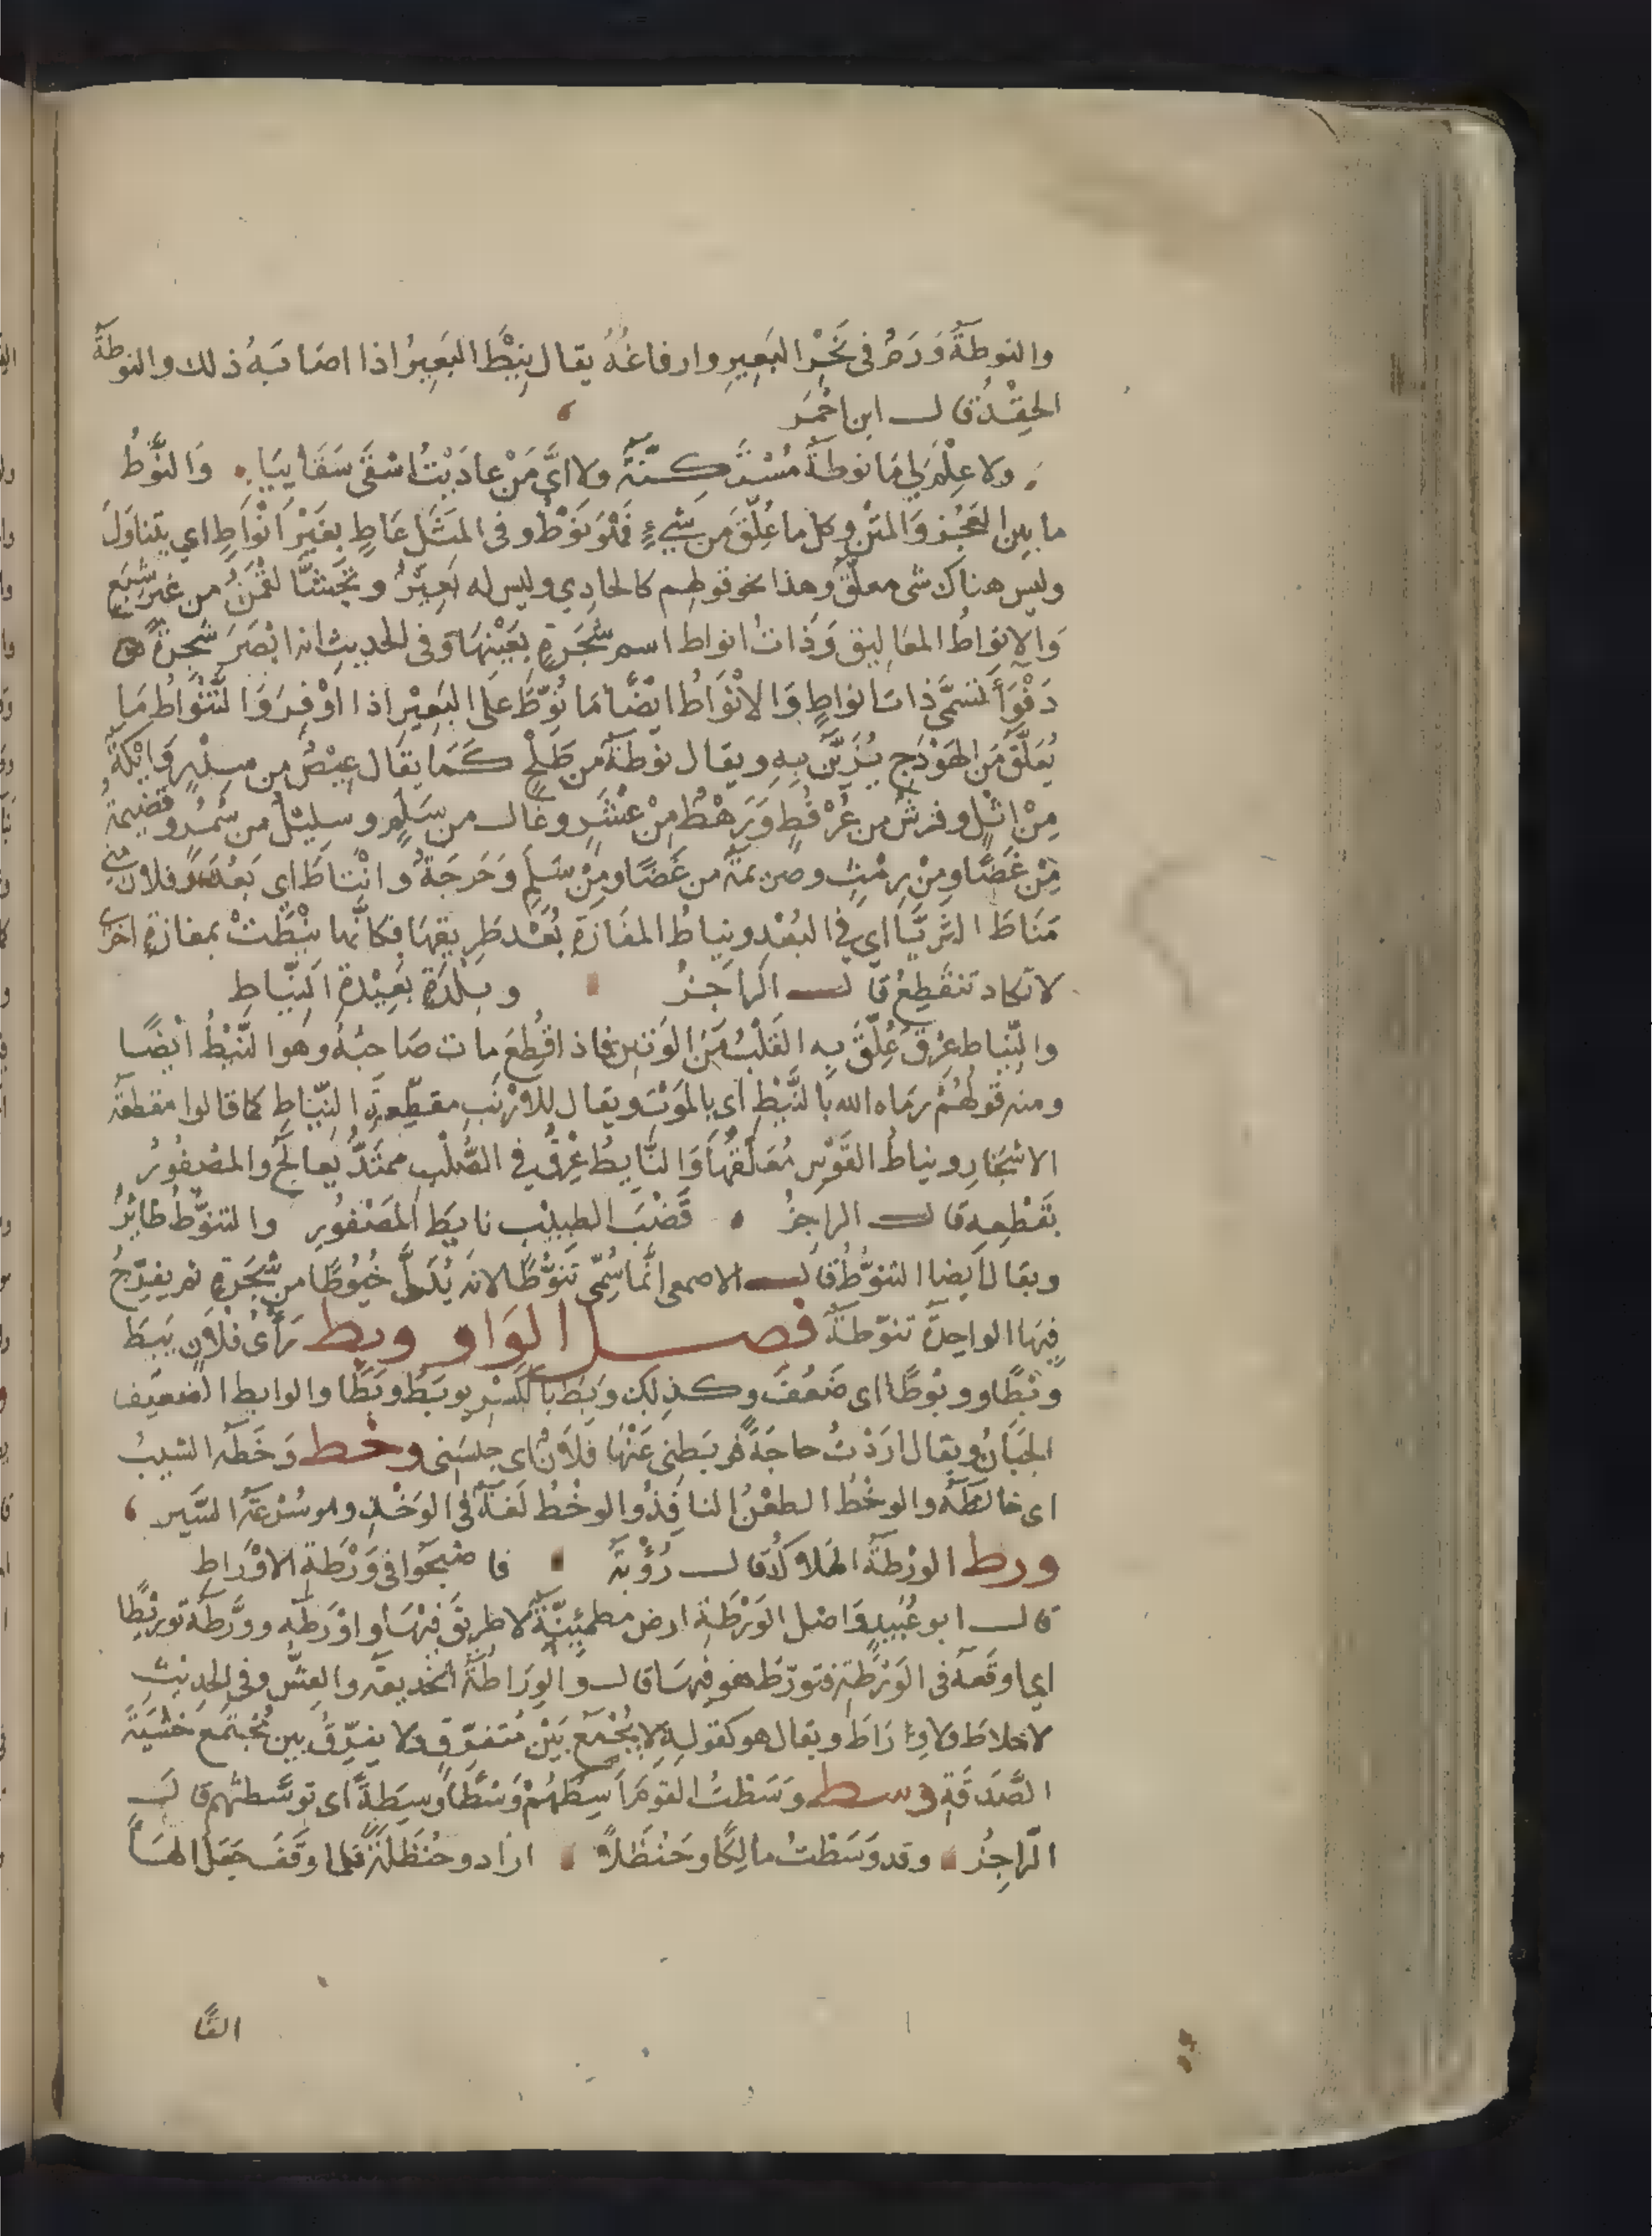 والنوطةُ وَرَمٌ فى نَحْرِ البَعِيرِ وارفاغُهُ يقال نِيْطَ البَعِيرُ اذا اصَابَهُ ذلك والنوطَةُ
الحِقْدُ قال ابن احْمَر
ولا عِلْمَ لِي مَا نوطةٌ مُسْتَكِنَّةٌ ولا اىَّ مَنْ عادَيْتُ اسْقَى سَقَايِيَا وَالنَّوْطُ
ما بين العَجُزِ وَالمَتْنِ وكل ما عُلِّقَ من شَىْءٍ فَهُوَ نَوْطٌ وفى المَثَلِ عَاطٍ بغَيْرِ اَنْوَاطٍ اي يتناوَلُ
وليس هناك شى معلّقٌ وهذا نحو قولهم كالحادِي وليس له بَعِيْرٌ وتجَشَّا لُقْمَنُ من غيرِ شِبَعٍ
وَالانواطُ المعَاليق وَذَاتُ انواط اسم شَجَرةٍ بعَيْنِهَا وفى الحديث انه ابْصَرَ شجرةً
دَفْوَاَ تسَمَّى ذات انواطٍ وَالانْوَاطُ ايْضًا مَا نُوِّطَ عَلَى البَعِيْرِ اذا اوْقِرَ وَالتَّنْوَاطُ مَا
يُعَلَّقُ مِنَ الهَوْدَجِ يُزَيَّنُ بِهِ ويقال نوْطَةٌ من طَلْحٍ كَمَا يُقَال عِيْصٌ من سِدْرٍ وَايْكَةٌ
مِنْ اثْلٍ وفرشٌ من عُرْفُطٍ وَرَهْطٌ مِنْ عُشَرٍ وغال من سَلَمٍ وسليْلٌ من سَمُرٍ وقصيمَةٌ
مِنْ غَضًا ومِنْ رِمْثٍ وصريمَةٌ من غَضًا ومِنْ سَلَمٍ وَحَرَجَةٌ وانْتَاطَ اي بَعُدَ فلان منى
مَنَاطَ الثريَّا اي فى البُعْدِ ونِيَاطُ المفَازَةِ بُعْد طَرِيقِهَا فكانَّها نِيْطَتْ بمفازةٍ اخرى
لا تكاد تنقطِعُ قال الراجزُ وبلْدَةٍ بعِيْدَةِ النِّيَاطِ
والنِّيَاط عِرْقٌ عُلِّقَ بِهِ القَلْبُ مِنَ الوَتِيْنِ فاذا قُطِعَ مات صَاحبُهُ وهو النَّيْطُ ايْضًا
ومنه قولُهُمْ رمَاه الله بالنَّيْطِ اى بالمَوْتِ ويقال للارْنَبِ مقطّعةُ النِّيَاطِ كما قالوا مقطعَةُ
الاسْحَارِ ونياطُ القَوْسِ مُعَلَّقُهَا وَالنَّايطُ عِرْقٌ فى الصُّلْبِ ممتَدٌّ يُعالَجُ والمصْفُوْرُ
بقَطْعِهِ قال الراجزُ قَضْبَ الطبِيْبِ نايِطَ المَصْفُورِ والتنوُّطُ طَائرٌ
ويقال ايضا التنوُّطُ قال الاصمعى انَّما سُمّى تَنَوُّطًا لانه يُدَلّى خُيُوْطًا من شجَرَةٍ ثم يفرِّخُ
فِيْهَا الواحِدَةُ تنَوّطةٌ فصل الوَاو وبط رَأىُ فلانٍ يَبِطُ
وَبْطًا ووبُوطًا اى ضَعُفَ وكذلك وَبِطَ بالكَسْرِ يوبَطُ وبَطًا والوابط الضعِيفُ
الجبَانُ ويقال ارَدْتُ حاجَةً فوبَطنى عَنْهَا فلَانٌ اى حبسَنى وخط وَخَطَهُ الشيبُ
اى خالطَهُ والوخْطُ الطعْنُ النافِذُ والوخْطُ لغَةٌ فى الوَخْدِ وهو سُرْعَةُ السَّير
ورط الورْطَةُ الهَلاكُ قال رُؤْبَةُ فاصْبحُوا فى وَرْطَةِ الاوْرَاطِ
قال ابو عُبَيدٍ وَاصْل الوَرْطَةِ ارض مطمئِنَّةٌ لا طرِيْقَ فِيْهَا واوْرَطَهُ وورَّطَهُ توريْطًا
اى اوقَعَهُ فى الوَرْطَةِ فتورّطَ هو فِيْهَا قال والوِرَاطَةُ الخَديعَةُ والغِشّ وفى الحديث
لا خلاطَ ولا وِرَاطَ ويقال هو كقولهِ لا يُجْمَعُ بَيْنَ مُتفَرِّقٍ ولا يفَرّقُ بين مُجْتَمَعٍ خَشْيَةَ
الصَّدَقَةِ وسط وَسَطْتُ القومَ اَسِطُهُمْ وَسْطًا وسِطَةً اى توَسَّطتُهم قال
الرّاجِزُ وقد وَسَطْتُ مالِكًا وحَنْظَلاً ارَاد وحَنْظَلةً فلما وقَفَ جَعَلَ الهَا
الفًا